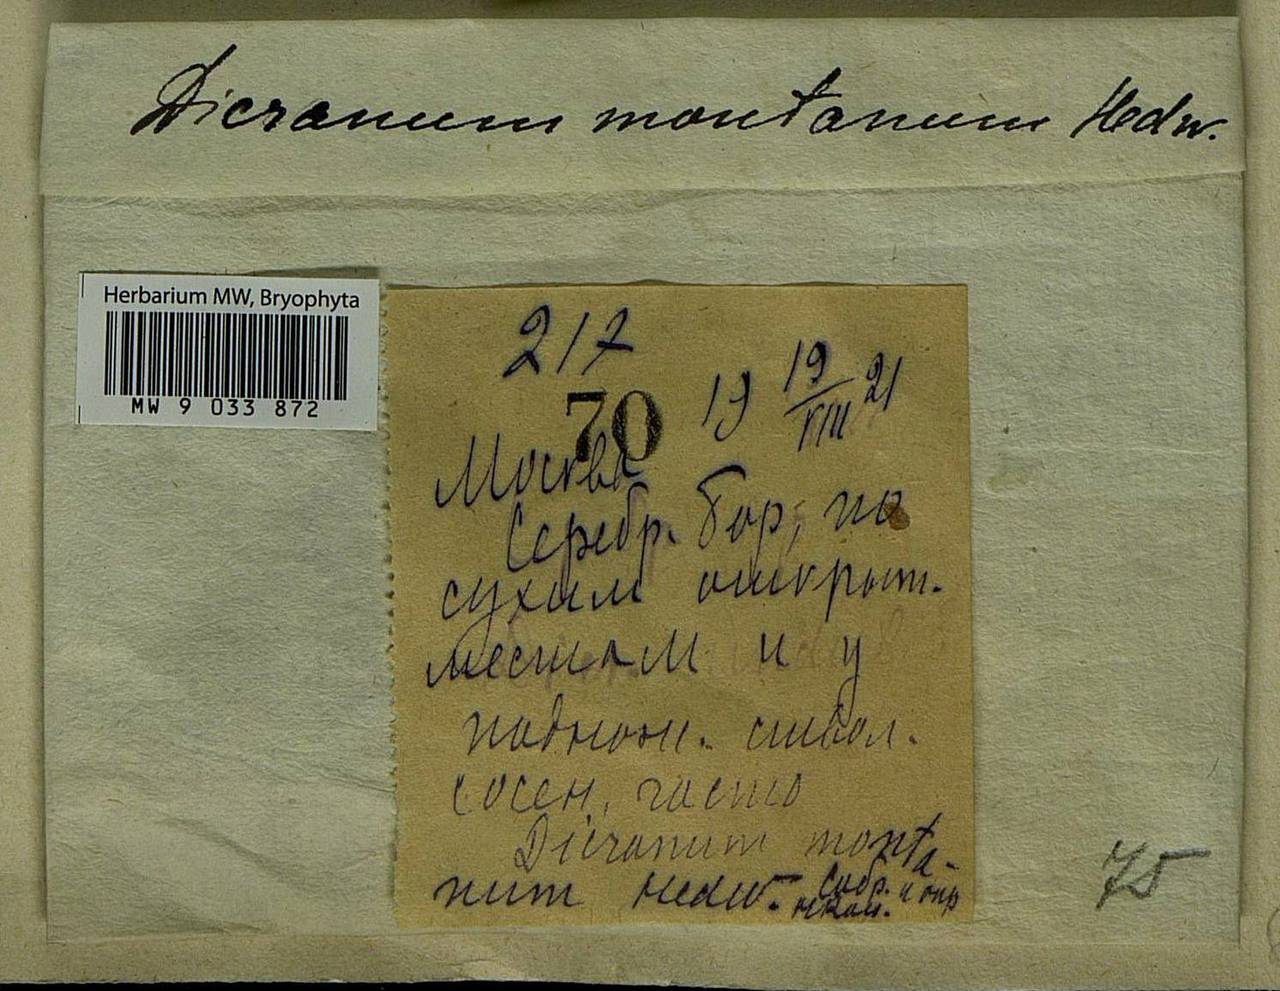 Dicranum montanum Hedw.
Herbarium MW, Bryophyta
MW 9 033 872
217
70
19 19/VIII 21
Москва
Серебр. бор, по
сухим открыт.
местам и у
поднож. ствол.
сосен, часто
Dicranum monta-
num Hedw. Собр.
и опр
75